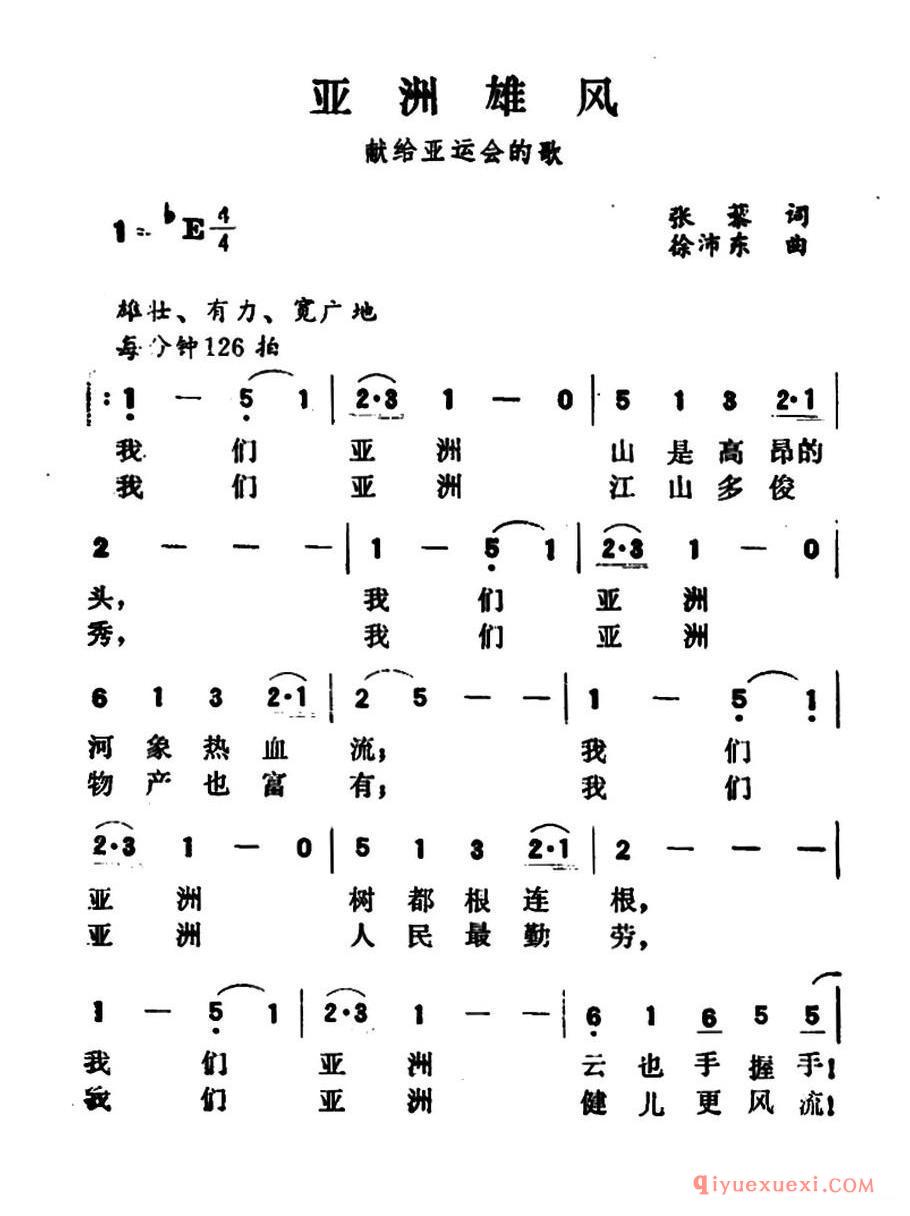 亚洲雄风
献给亚运会的歌
1=♭E 4/4
张藜 词
徐沛东 曲
雄壮、有力、宽广地
每分钟126拍
‖: 1 — 5 1 | 2·3 1 — 0 | 5 1 3 2·1 |
我们亚洲 山是高昂的
我们亚洲 江山多俊
2 — — — | 1 — 5 1 | 2·3 1 — 0 |
头, 我们亚洲
秀, 我们亚洲
6 1 3 2·1 | 2 5 — — | 1 — 5 1 |
河象热血流; 我们
物产也富有; 我们
2·3 1 — 0 | 5 1 3 2·1 | 2 — — — |
亚洲 树都根连根,
亚洲 人民最勤劳,
1 — 5 1 | 2·3 1 — | 6 1 6 5 5 |
我们亚洲 云也手握手!
我们亚洲 健儿更风流!
qiyuexuexi.COM